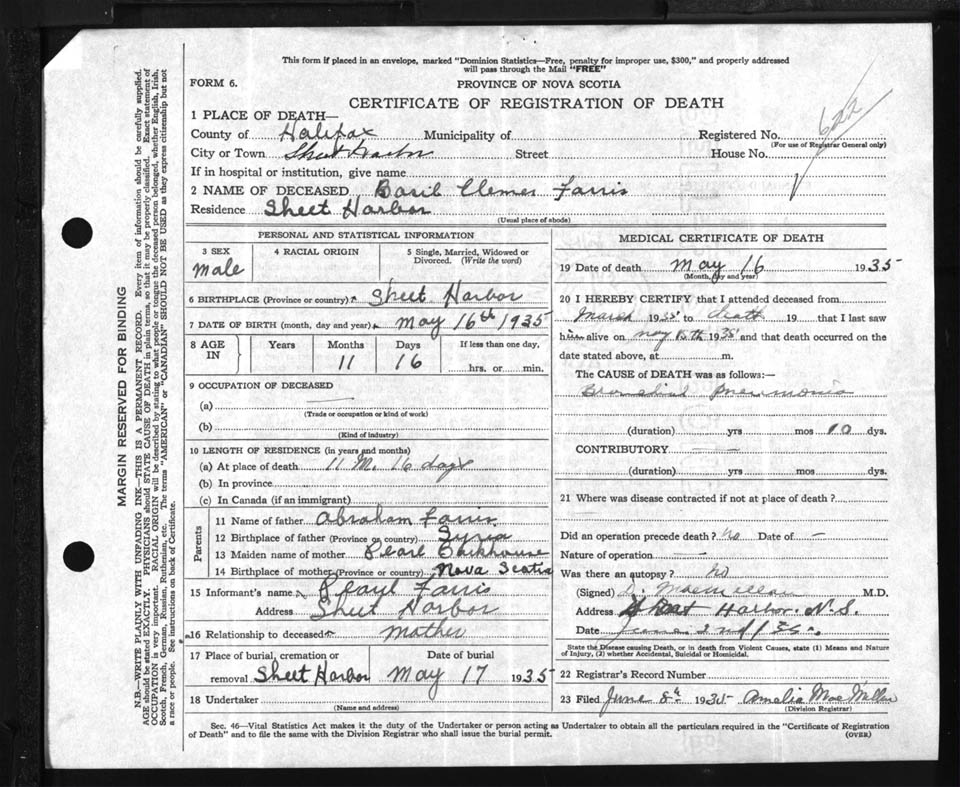 This form if placed in an envelope, marked "Dominion Statistics—Free, penalty for improper use, $300," and properly addressed
will pass through the Mail "FREE"
FORM 6.
PROVINCE OF NOVA SCOTIA
CERTIFICATE OF REGISTRATION OF DEATH
1 PLACE OF DEATH—
622
County of Halifax Municipality of Registered No.
(For use of Registrar General only)
City or Town Sheet Harbor Street House No.
If in hospital or institution, give name
2 NAME OF DECEASED Basil Clemes Farris
Residence Sheet Harbor
(Usual place of abode)
PERSONAL AND STATISTICAL INFORMATION
3 SEX 4 RACIAL ORIGIN 5 Single, Married, Widowed or
Divorced. (Write the word)
Male
6 BIRTHPLACE (Province or country) Sheet Harbor
7 DATE OF BIRTH (month, day and year) May 16th 1935
8 AGE IN Years Months Days If less than one day,
11 16 hrs. or min.
9 OCCUPATION OF DECEASED
(a)
(Trade or occupation or kind of work)
(b)
(Kind of industry)
10 LENGTH OF RESIDENCE (in years and months)
(a) At place of death 11 M. 16 days
(b) In province
(c) In Canada (if an immigrant)
Parents
11 Name of father Abraham Farris
12 Birthplace of father (Province or country) Syria
13 Maiden name of mother Pearl
14 Birthplace of mother (Province or country) Nova Scotia
15 Informant's name Pearl Farris
Address Sheet Harbor
16 Relationship to deceased mother
17 Place of burial, cremation or Date of burial
removal Sheet Harbor May 17 1935
18 Undertaker
(Name and address)
MEDICAL CERTIFICATE OF DEATH
19 Date of death May 16 1935
(Month, day and year)
20 I HEREBY CERTIFY that I attended deceased from
March 1935 to death 19 that I last saw
him alive on May 1935 and that death occurred on the
date stated above, at m.
The CAUSE of DEATH was as follows:—
Bronchial Pneumonia
(duration) yrs mos 10 dys.
CONTRIBUTORY
(duration) yrs mos dys.
21 Where was disease contracted if not at place of death?
Did an operation precede death? No Date of —
Nature of operation —
Was there an autopsy? No
(Signed) D. MacMillan M.D.
Address Sheet Harbor. N.S.
Date June 2nd / 35.
State the Disease causing Death, or in death from Violent Causes, state (1) Means and Nature
of Injury, (2) whether Accidental, Suicidal or Homicidal.
22 Registrar's Record Number
23 Filed June 8th 1935 Amelia
(Division Registrar)
Sec. 46—Vital Statistics Act makes it the duty of the Undertaker or person acting as Undertaker to obtain all the particulars required in the "Certificate of Registration
of Death" and to file the same with the Division Registrar who shall issue the burial permit.
(OVER)
MARGIN RESERVED FOR BINDING
N.B.—WRITE PLAINLY WITH UNFADING INK—THIS IS A PERMANENT RECORD. Every item of information should be carefully supplied.
AGE should be stated EXACTLY. PHYSICIANS should STATE CAUSE OF DEATH in plain terms, so that it may be properly classified. Exact statement of
OCCUPATION is very important. RACIAL ORIGIN will be described by stating to what people or tongue the deceased person belonged, whether English, Irish,
Scotch, French, German, Russian, Ruthenian, etc. The terms "AMERICAN" or "CANADIAN" SHOULD NOT BE USED as they express citizenship but not
a race or people. See instructions on back of Certificate.